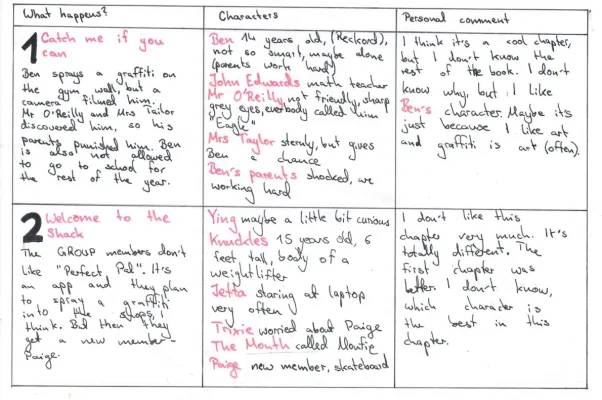 What happens?
Characters
Personal comment
1 Catch me if you
can
Ben sprays a graffiti on
the gym wall, but a
camera filmed him.
Mr O'Reilly and Mrs Tailor
discovered him, so his
parents punished him. Ben
is also not allowed
to go to school for
the rest of the year.
Ben 14 years old, (Reckord),
not so smart, maybe alone
(parents work hard)
John Edwards math teacher
Mr O'Reilly not friendly, sharp
grey eyes, everbody called him
"Eagle"
Mrs Taylor sternly, but gives
Ben a chance
Ben's parents shocked, are
working hard
I think it's a cool chapter,
but I don't know the
rest of the book. I don't
know why, but I like
Ben's character. Maybe it's
just because I like art
and graffiti is art (often).
2 Welcome to the
Shack
The GROUP members don't
like "Perfect Pal". It's
an app and they plan
to spray a graffiti
into the shops, I
think. But then they
get a new member-
Paige.
Ying maybe a little bit curious
Knuckles 15 years old, 6
feet, tall, body of a
weightlifter
Jetta staring at laptop
very often
Trixie worried about Paige
The Mouth called Montie
Paige new member, skateboard
I don't like this
chapter very much. It's
totally different. The
first chapter was
better. I don't know,
which character is
the best in this
chapter.